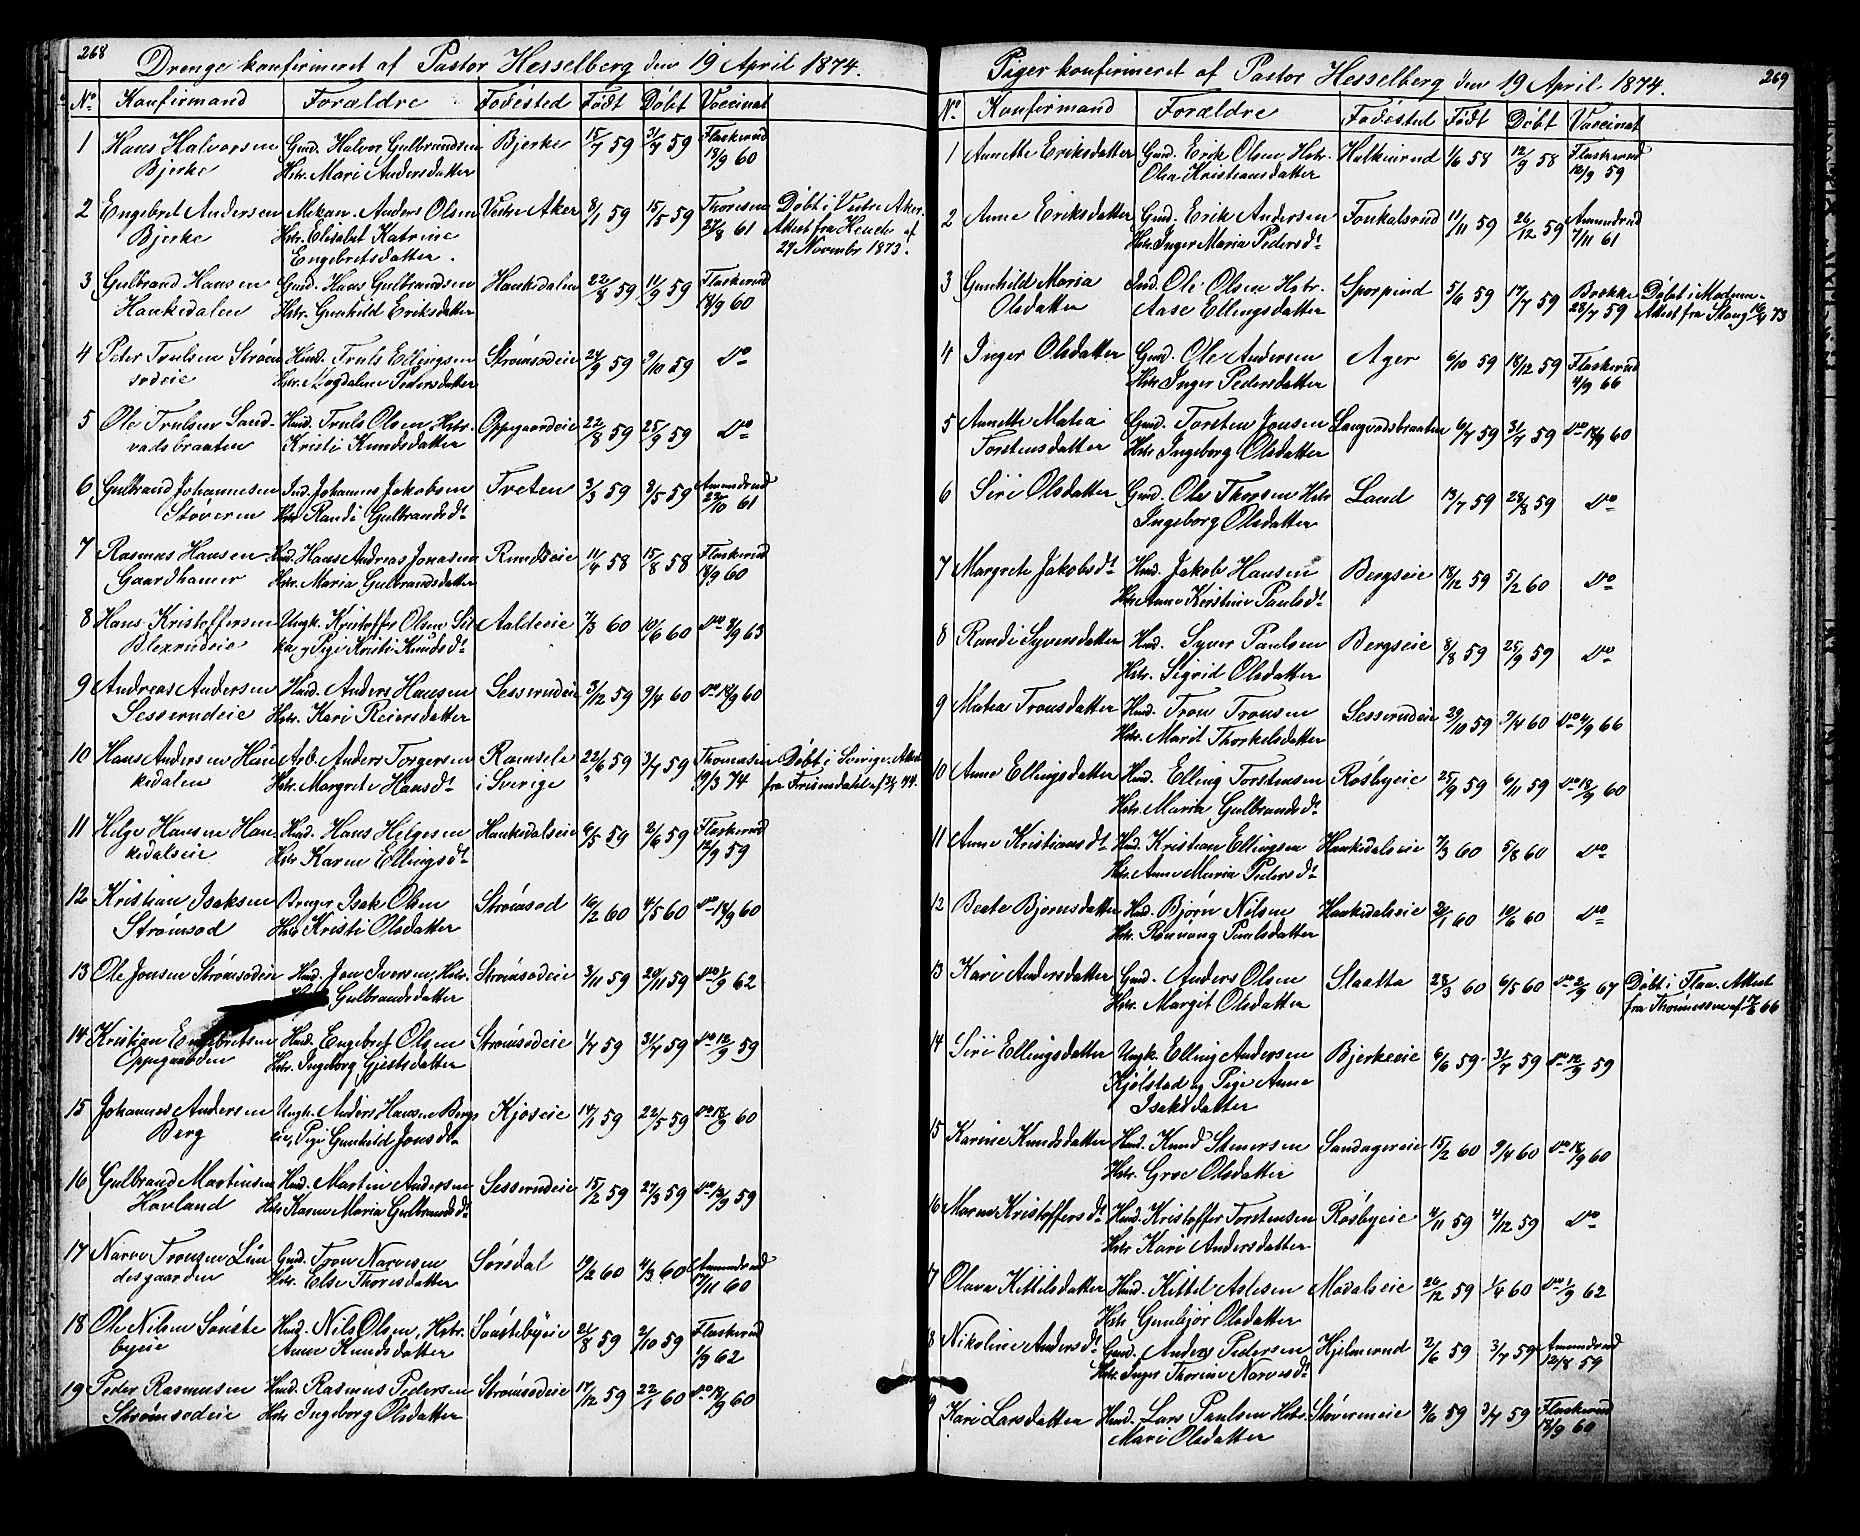 268
Drenge konfirmeret af Pastor Hesselberg den 19 April 1874.
No. Konfirmand Forældre Fødested Født Døbt Vaccinat
1 Hans Halvorsen Gmd. Halvor Gulbrandsen Bjerke 15/7 59 31/7 59 Flaskerud
Bjerke Hstr. Mari Andersdatter 18/9 60
2 Engebret Andersen Mekan. Anders Olsen Vestre Aker 8/1 59 15/5 59 Thoresen Døbt i Vestre Aker.
Bjerke Hstr. Elisabet Katrine 27/8 61 Attest fra Henche af
Engebretsdatter. 27 Novembr 1873.
3 Gulbrand Hansen Gmd. Hans Gulbrandsen Haukedalen 22/8 59 11/9 59 Flaskerud
Haukedalen Hstr. Gunhild Eriksdatter 18/9 60
4 Peter Trulsen Strøm Hmd. Truls Ellingsen Strømsodeie 24/9 59 9/10 59 Do
sodeie Hstr. Magdalene Pedersdatter
5 Ole Trulsen Sand- Hmd. Truls Olsen, Hstr. Oppegaardeie 22/8 59 25/9 59 Do
vadsbraaten Kristi Knudsdatter
6 Gulbrand Johannesen Ind. Johannes Jakobsen Treten 3/3 59 8/5 59 Amundrud
Støveren Hstr Randi Gulbrandsdt 22/10 61
7 Rasmus Hansen Hmd. Hans Andreas Jonasen Rundseie 11/4 58 15/8 58 Flaskerud
Gaardhamer Hstr. Maria Gulbrandsdatter 18/9 60
8 Hans Kristoffersen Ungk. Kristoffer Olsen Aaldeie 7/3 60 10/6 60 Do 8/9 63
Blexrudeie og Pige Kristi Knudsdt
9 Andreas Andersen Hmd. Anders Hansen Sesserudeie 3/12 59 9/4 60 Do 18/9 60
Sesserudeie Hstr. Kari Reiersdatter
10 Hans Andersen Hau Arb. Anders Torgersen Ramsele 22/6 59 3/7 59 Thomasen Døbt i Sverige. Attest
kedalen Hstr. Margrete Hansdt i Sverige 19/3 74
11 Helge Hansen Hau Hmd. Hans Helgesen Haukedalseie 6/5 59 2/6 59 Flaskerud
kedalseie Hstr Karen Ellingsdt 12/9 59
12 Kristian Isaksen Bruger Isak Olsen Strømsod 16/2 60 4/5 60 Do 18/9 60
Strømsod Hstr Kristi Olsdatter
13 Ole Jonsen Strømsodeie Hmd. Jon Iversen, Hstr. Strømsodeie 3/11 59 20/11 59 Do 1/9 62
Gulbrandsdatter
14 Kristian Engebretsen Hmd. Engebret Olsen Strømsodeie 1/7 59 31/7 59 Do 12/9 59
Oppegaarden Hstr. Ingeborg Gjestsdatter
15 Johannes Andersen Ungk. Anders Hansen Bergs Kjoseie 14/1 59 22/5 59 Do 18/9 60
Berg eie, Pige Gunhild Jonsdt
16 Gulbrand Martinsen Hmd. Martin Andersen Sesserudeie 15/2 59 27/3 59 Do 13/9 59
Havland Hstr Karen Maria Gulbrandsdt
17 Narve Tronsen Lin Gmd. Tron Narvesen Sørsdal 19/2 60 4/3 60 Amundrud
desgaarden Hstr. Else Thoresdatter 17/11 60
18 Ole Nilsen Sønste Hmd. Nils Olsen, Hstr. Sønstebyeie 21/8 59 2/10 59 Flaskerud
byeie Anne Knudsdatter 1/9 62
19 Peder Rasmusen Hmd. Rasmus Pedersen Strømsodeie 17/12 59 22/1 60 Do 18/9 60
Strømsodeie Hstr Ingeborg Olsdatter
269
Piger konfirmeret af Pastor Hesselberg den 19 April 1874.
No. Konfirmand Forældre Fødested Født Døbt Vaccinat
1 Annette Eriksdatter Gmd. Erik Olsen Hstr. Halkinrud 1/6 58 12/9 58 Flaskerud
Olea Kristiansdatter 10/9 59
2 Anne Eriksdatter Gmd. Erik Andersen Fonkalsrud 11/11 59 26/12 59 Amundrud
Hstr. Inger Maria Pedersdt 7/11 61
3 Gunhild Maria Ind. Ole Olsen Hstr. Sporpind 5/6 59 17/7 59 Brokke Døbt i Modum.
Olsdatter Aase Ellingsdatter 28/7 59 Attest fra Stang 16/4 73
4 Inger Olsdatter Gmd. Ole Andersen Ager 6/10 59 18/12 59 Flaskerud
Hstr Inger Pedersdatter 4/9 66
5 Annette Matea Gmd. Torsten Jonsen Langvadsbraaten 6/7 59 31/7 59 Do 18/9 60
Torstensdatter Hstr Ingeborg Olsdatter
6 Siri Olsdatter Gmd. Ole Thorsen Hstr Land 13/7 59 28/8 59 Do
Ingeborg Olsdatter
7 Margrete Jakobsdt Hmd. Jakob Hansen Bergseie 18/12 59 5/2 60 Do
Hstr Anne Kirstine Paulsdt
8 Randi Syversdatter Hmd. Syver Paulsen Bergseie 8/8 59 25/9 59 Do
Hstr. Sigrid Olsdatter
9 Matea Tronsdatter Hmd. Tron Tronsen Sesserudeie 29/10 59 9/4 60 Do 4/9 66
Hstr. Marit Thorkelsdatter
10 Anne Ellingsdatter Hmd. Elling Torstensen Røsbyeie 25/9 59 6/11 59 Do 18/9 60
Hstr Maria Gulbrandsdt
11 Anne Kristiansdt Hmd. Kristian Ellingsen Haukedalseie 7/3 60 5/8 60 Do
Hstr. Anne Maria Pedersdt
12 Beate Bjørnsdatter Hmd. Bjørn Nilsen Haukedalseie 20/1 60 10/6 60 Do
Hstr. Rønnaug Paulsdatter
13 Kari Andersdatter Gmd. Anders Olsen Slaatta 28/3 60 6/5 60 Do 2/9 67 Døbt i Flaa. Attest
Hstr. Margit Olsdatter
14 Siri Ellingsdatter Ungk. Elling Andersen Bjerkeeie 6/6 59 31/7 59 Do 12/9 59
Kjølstad og Pige Anne
Isaksdatter
15 Karine Knudsdatter Hmd. Knud Stenersen Sandagereie 15/2 60 9/4 60 Do 18/9 60
Hstr. Groe Olsdatter
16 Maren Kristoffersdt Hmd. Kristoffer Torstensen Røsbyeie 4/11 59 4/12 59 Do
Hstr Kari Andersdatter
17 Olava Kittilsdatter Hmd. Kittel Aslesen Modalseie 26/12 59 1/4 60 Do 1/9 62
Hstr Gunbjør Olsdatter
18 Nikoline Andersdt Gmd. Anders Pedersen Hjelmerud 2/6 59 3/7 59 Amundrud
Hstr. Inger Thorine Narvesdt 12/8 59
19 Kari Larsdatter Hmd. Lars Paulsen Hstr. Støverneie 4/6 59 3/7 59 Flaskerud
Mari Olsdatter 18/9 60